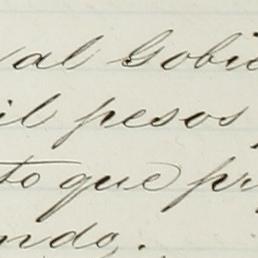 al Gobie
il pesos
to que pr
ndo.